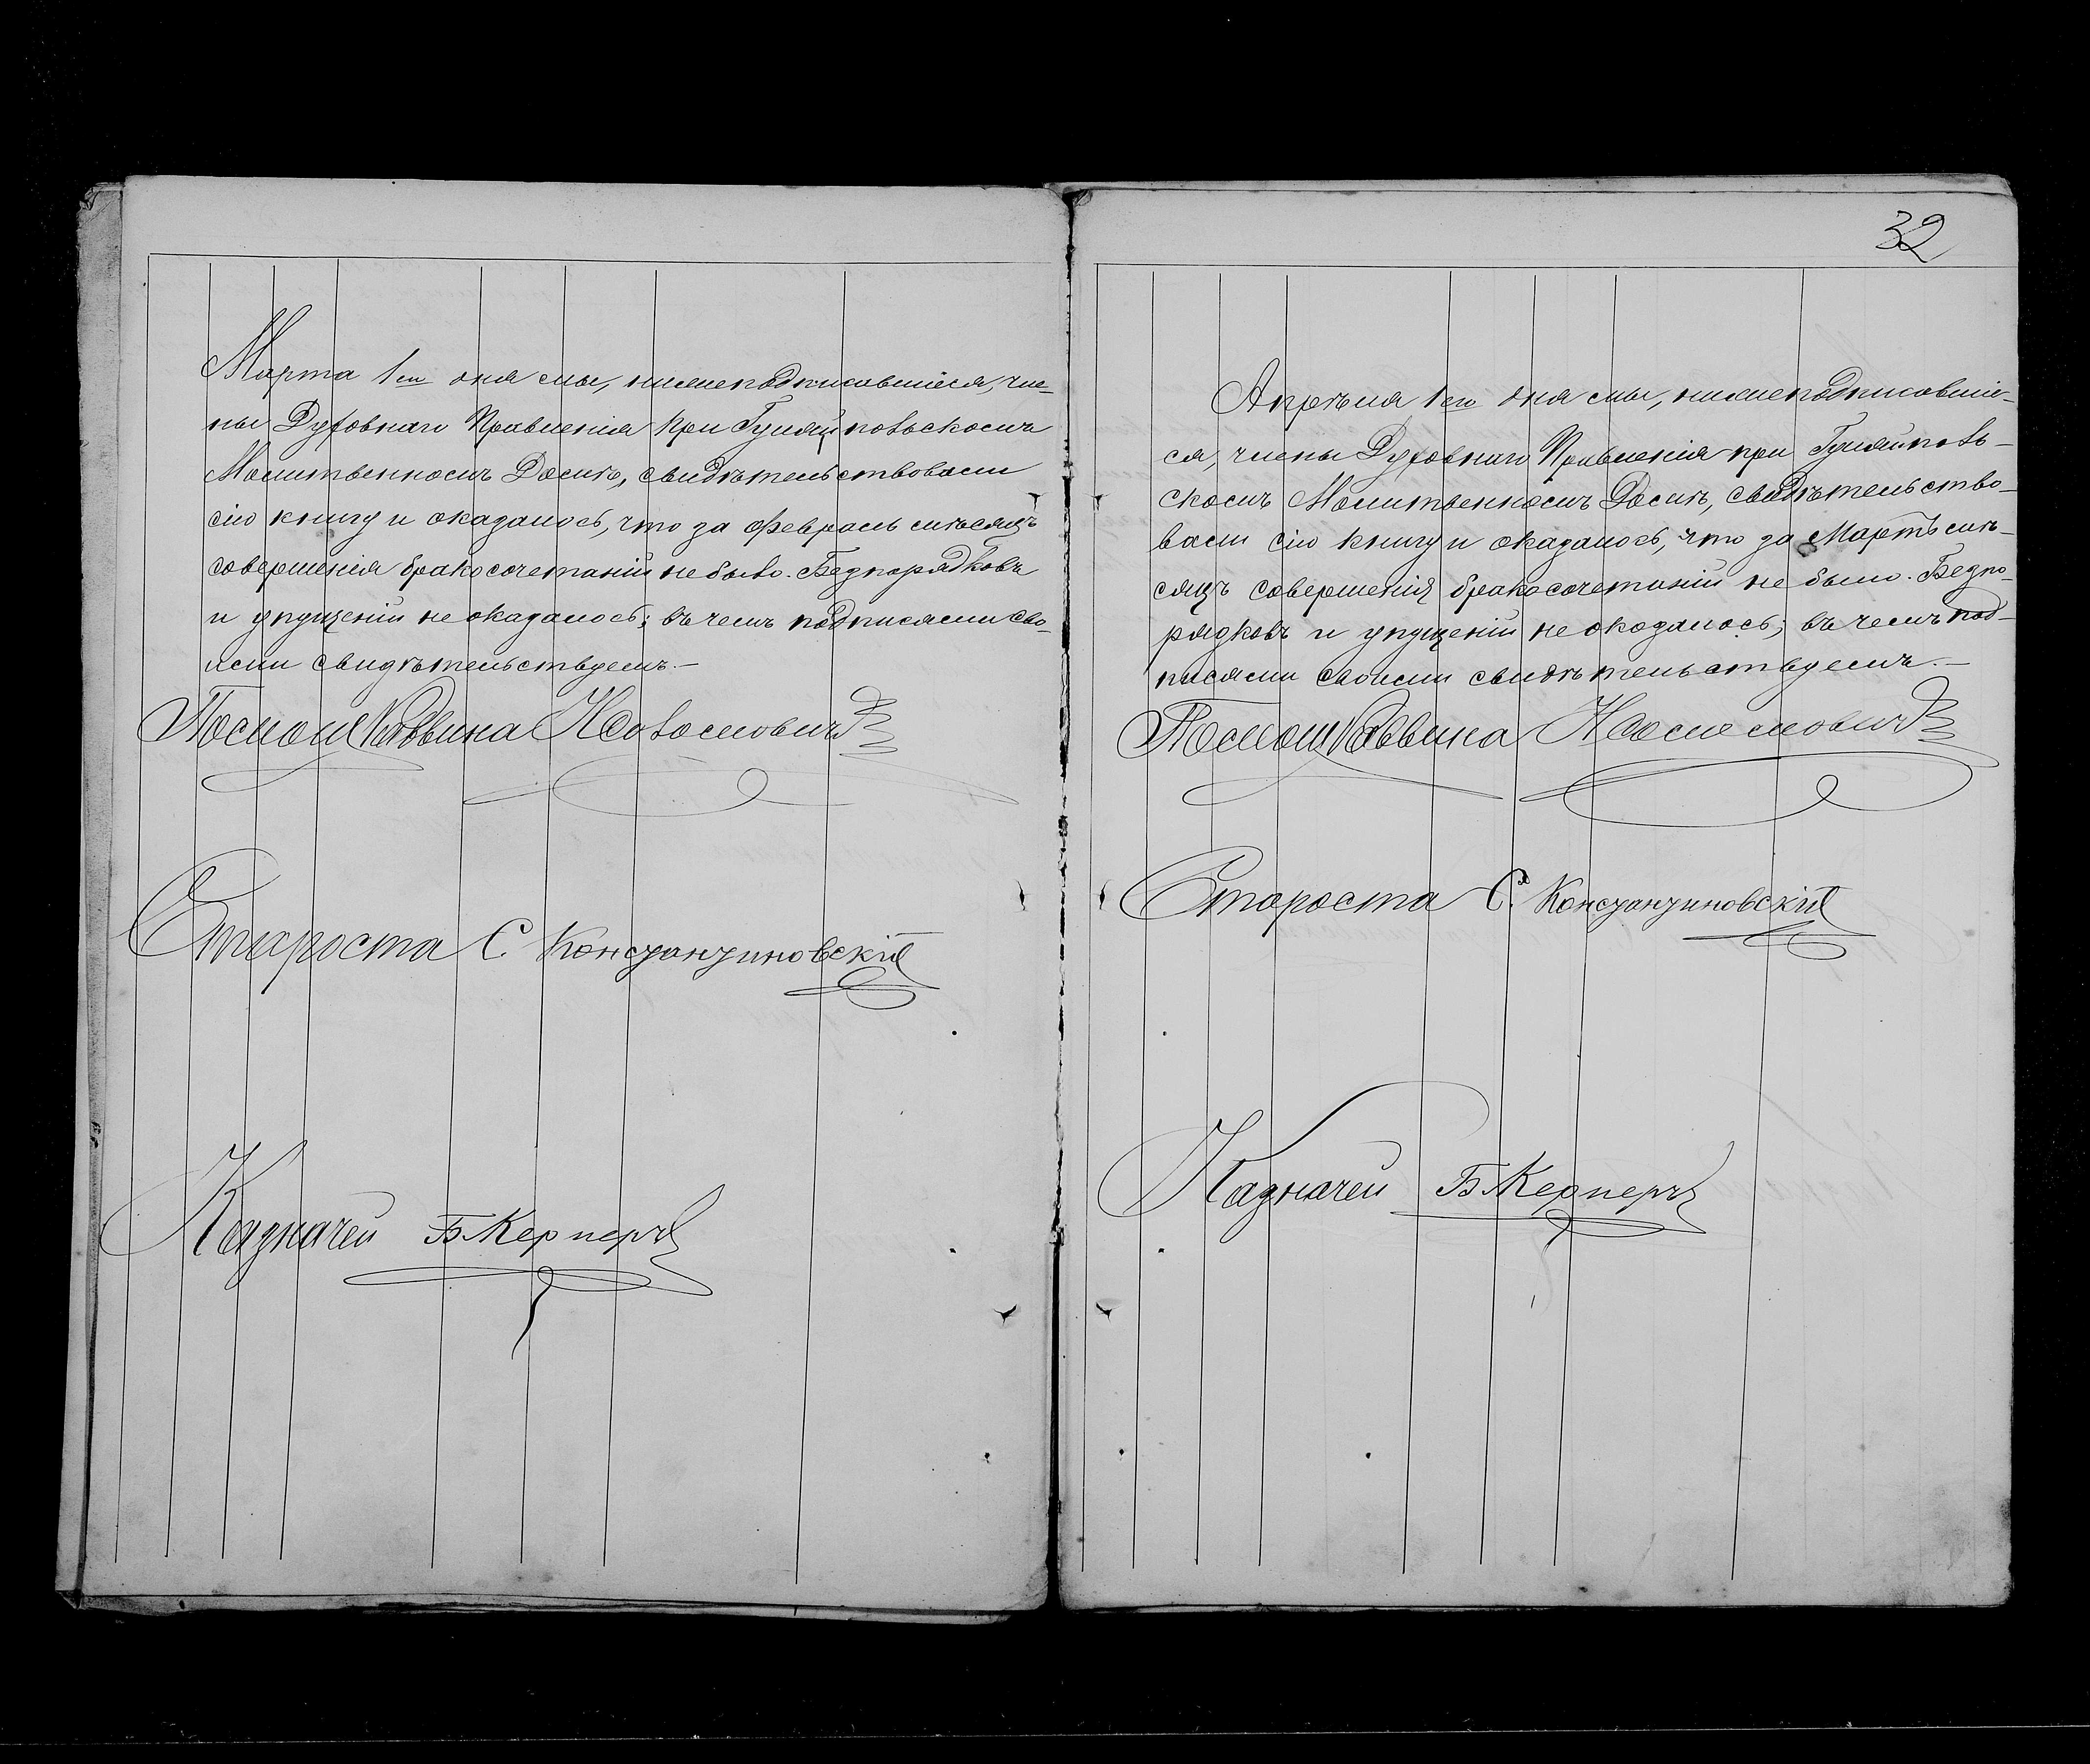 Марта 1го дня мы, нижеподписавшіеся, чле-
ны Духовнаго Правленія при Гуляйпольскомъ
Молитвенномъ Домѣ, свидѣтельствовали
сію книгу и оказалось, что за Февраль мѣсяцъ
совершенія бракосочетаній не было. Безпорядковъ
и упущеній не оказалось; въ чемъ подписями сво-
ими свидѣтельствуемъ.—
Помощ Раввина
Староста С Константиновскій
Казначей Б Кернеръ
32
Апрѣля 1го дня мы, нижеподписавшіе-
ся, члены Духовнаго Правленія при Гуляйполь-
скомъ Молитвенномъ Домѣ, свидѣтельство-
вали сію книгу и оказалось, что за Мартъ мѣ-
сяцъ совершенія бракосочетаній не было. Безпо-
рядковъ и упущеній не оказалось; въ чемъ под-
писями своими свидѣтельствуемъ.—
Помощ Раввина
Староста С. Константиновскій
Казначей Б Кернеръ